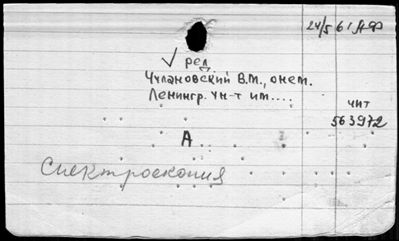 24/5 61
ред.
Чулановский В.М., онем.
Ленингр. ун-т им....
чит
563972
А
Спектроскопия